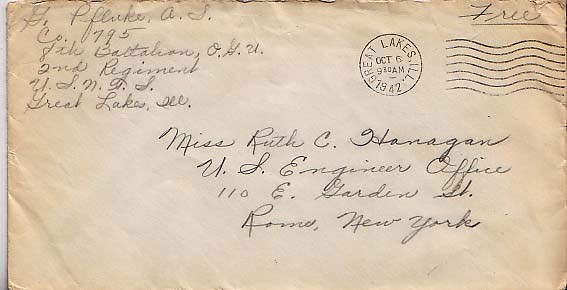 G. Pfluke, A. S.
Co. 795
8th Battalion, O.G.U.
2nd Regiment
U. S. N. T. S.
Great Lakes, Ill.
Free
GREAT LAKES, ILL.
OCT 6
9 30 AM
1942
Miss Ruth C. Hanagan
U. S. Engineer Office
110 E. Garden St.
Rome, New York